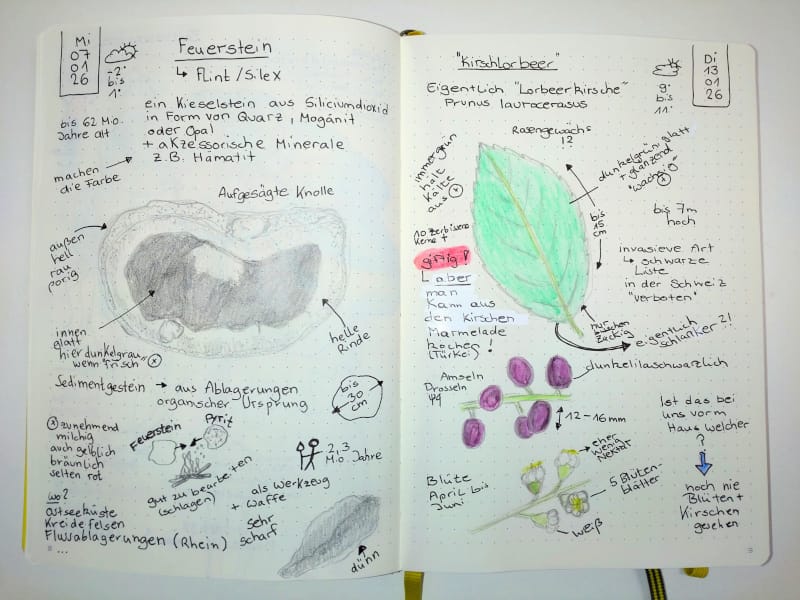 Mi
07
01
26
-2°
bis
1°
Feuerstein
↳ Flint/Silex
bis 62 Mio.
Jahre alt
ein Kieselstein aus Siliciumdioxid
in Form von Quarz, Mogánit
oder Opal
+ akzessorische Minerale
z.B. Hämatit
machen
die Farbe
Aufgesägte Knolle
außen
hell
rau
porig
innen
glatt
hier dunkelgrau
wenn "frisch"
helle
Rinde
Sedimentgestein → aus Ablagerungen
organischer Ursprung
bis
30
cm
zunehmend
milchig
auch gelblich
bräunlich
selten rot
Feuerstein
Pyrit
gut zu bearbeiten
(schlagen)
2,3
Mio. Jahre
als Werkzeug
+ Waffe
sehr
scharf
dünn
wo?
Ostseeküste
Kreidefelsen
Flussablagerungen (Rhein)
...
"Kirschlorbeer"
Di
13
01
26
9°
bis
11°
Eigentlich "Lorbeerkirsche"
Prunus laurocerasus
Rosengewächs
!?
immergrün
hält
Kälte
aus
dunkelgrün glatt
+ glänzend
"wachsig"
bis
15
cm
bis 7m
hoch
10 zerbissene
Kerne +
giftig!
↳ aber
man
kann aus
den Kirschen
Marmelade
kochen!
(Türkei)
invasieve Art
↳ schwarze
Liste
in der Schweiz
"verboten"
nur
zackig
eigentlich
schlanker?!
Amseln
Drosseln
dunkellilaschwarzlich
12-16mm
Ist das bei
uns vorm
Haus welcher
?
noch nie
Blüten+
Kirschen
gesehen
Blüte
April bis
Juni
eher
wenig
Nektar
5 Blüten-
blätter
weiß